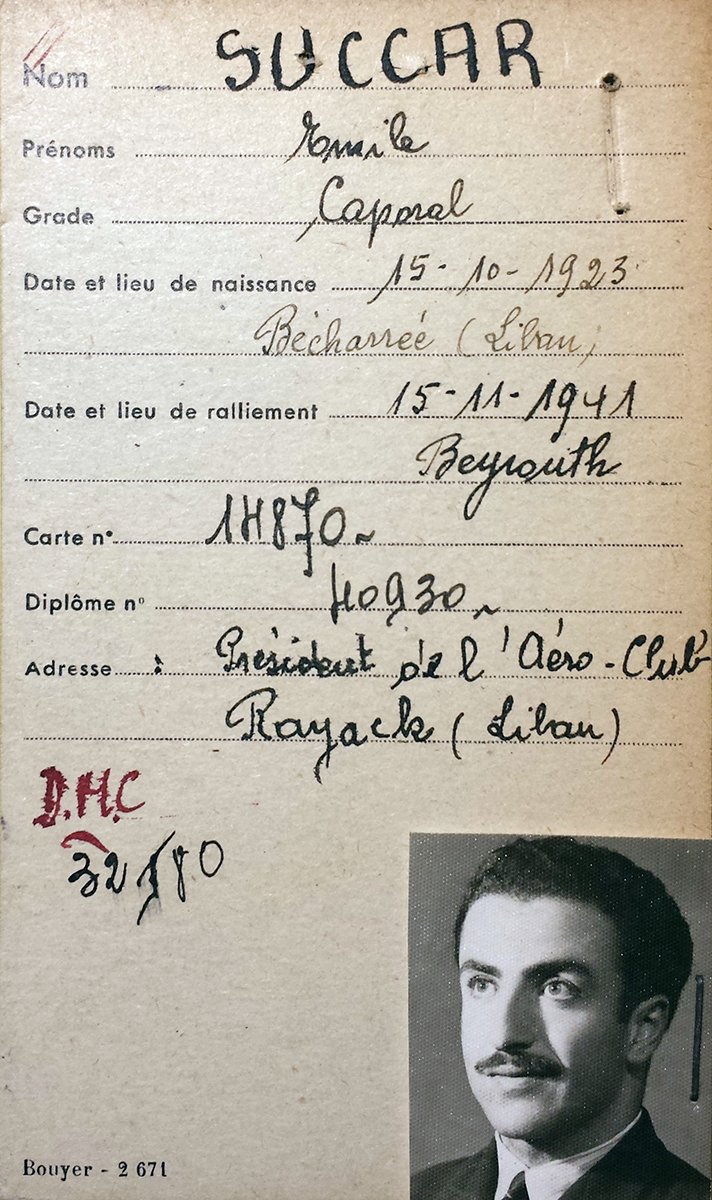 Nom SUCCAR
Prénoms Emile
Grade Caporal
Date et lieu de naissance 15-10-1923
Bécharréé (Liban)
Date et lieu de ralliement 15-11-1941
Beyrouth
Carte n° 14870
Diplôme n° 40930
Adresse : Président de l'Aéro-Club
Rayack (Liban)
D.M.C
32180
Bouyer - 2 671